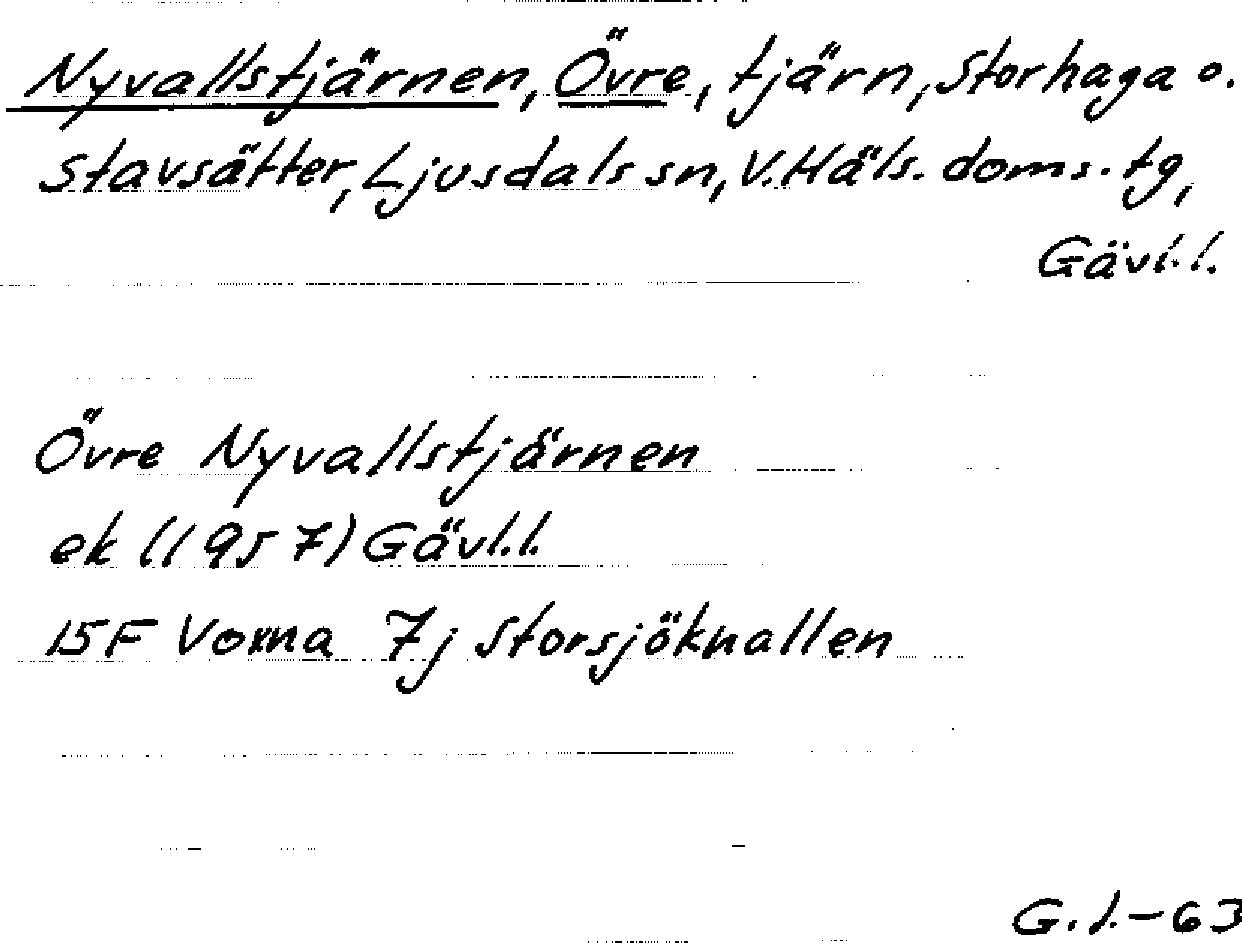 Nyvallstjärnen, Övre, tjärn, Storhaga o.
Stavsätter, Ljusdals sn, V. Häls. doms. tg,
Gävl.l.
Övre Nyvallstjärnen
ek (1957) Gävl.l.
15F Voxna 7j Storsjöknallen
G.l.-63